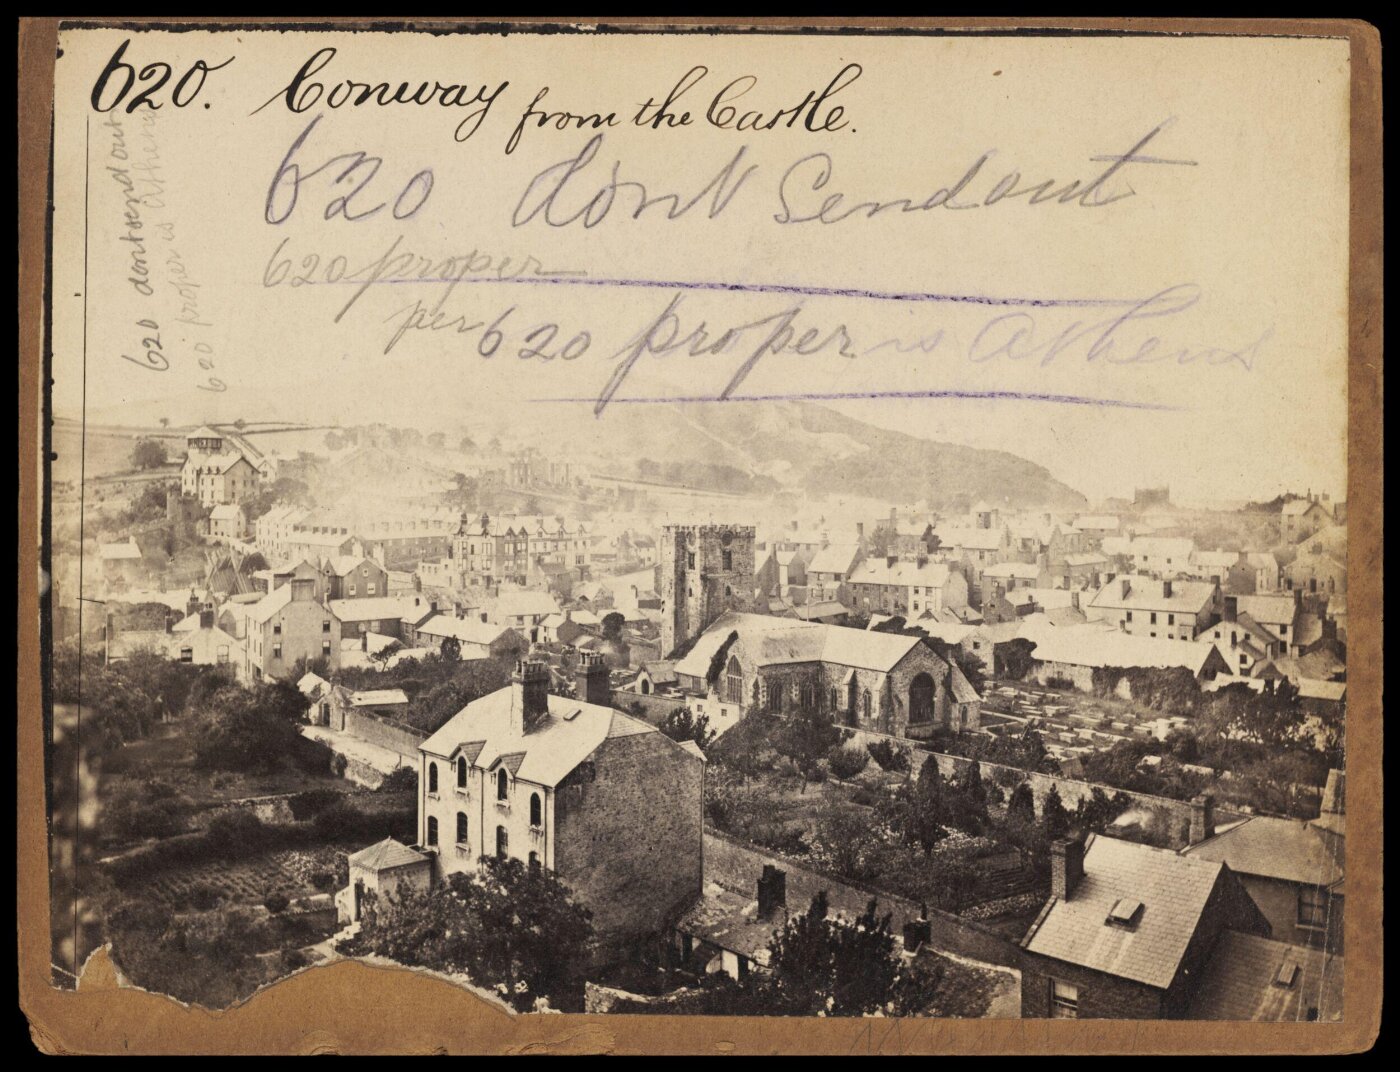 620. Conway from the Castle.
620 dont Send out
620 proper
per 620 proper is Athens
620 dont send out
620 proper is Athens